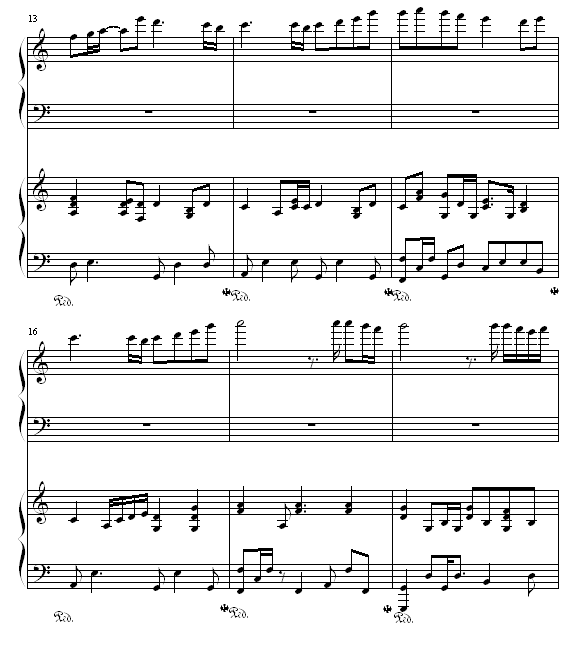 13
Ped.
Ped.
Ped.
16
Ped.
Ped.
Ped.